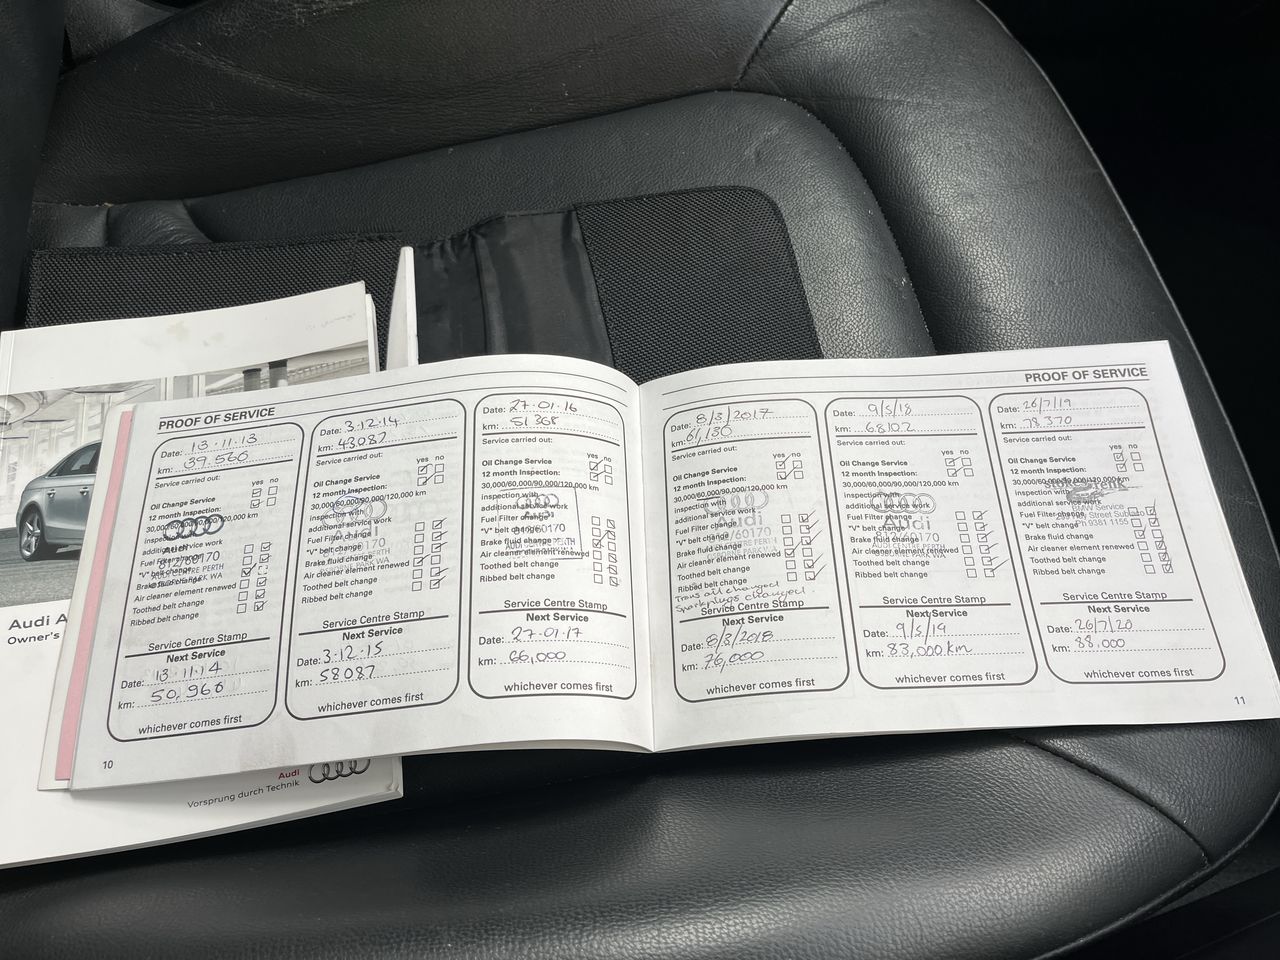 PROOF OF SERVICE
Date: 13.11.13
km: 39,566
Service carried out:
yes no
Oil Change Service
12 month Inspection:
30,000/60,000/90,000/120,000 km
inspection with
additional service work
Fuel Filter change
"V" belt change
Brake fluid change
Air cleaner element renewed
Toothed belt change
Ribbed belt change
Audi
812/60170
AUDI CENTRE PERTH
OSBORNE PARK WA
Service Centre Stamp
Next Service
Date: 13.11.14
km: 50,966
whichever comes first
Date: 3.12.14
km: 43087
Service carried out:
yes no
Oil Change Service
12 month Inspection:
30,000/60,000/90,000/120,000 km
inspection with
additional service work
Fuel Filter change
"V" belt change
Brake fluid change
Air cleaner element renewed
Toothed belt change
Ribbed belt change
Service Centre Stamp
Next Service
Date: 3.12.15
km: 58087
whichever comes first
Date: 27.01.16
km: 51368
Service carried out:
yes no
Oil Change Service
12 month Inspection:
30,000/60,000/90,000/120,000 km
inspection with
additional service work
Fuel Filter change
"V" belt change
Brake fluid change
Air cleaner element renewed
Toothed belt change
Ribbed belt change
Audi
812/60170
Service Centre Stamp
Next Service
Date: 27.01.17
km: 66,000
whichever comes first
10
PROOF OF SERVICE
Date: 8/3/2017
km: 61,130
Service carried out:
yes no
Oil Change Service
12 month Inspection:
30,000/60,000/90,000/120,000 km
inspection with
additional service work
Fuel Filter change
"V" belt change
Brake fluid change
Air cleaner element renewed
Toothed belt change
Ribbed belt change
Audi
812/60170
AUDI CENTRE PERTH
OSBORNE PARK WA
Trans oil changed
Sparkplugs changed.
Service Centre Stamp
Next Service
Date: 8/3/2018
km: 76,000
whichever comes first
Date: 9/5/18
km: 68102
Service carried out:
yes no
Oil Change Service
12 month Inspection:
30,000/60,000/90,000/120,000 km
inspection with
additional service work
Fuel Filter change
"V" belt change
Brake fluid change
Air cleaner element renewed
Toothed belt change
Ribbed belt change
Audi
812/60170
AUDI CENTRE PERTH
OSBORNE PARK WA
Service Centre Stamp
Next Service
Date: 9/5/19
km: 83,000km
whichever comes first
Date: 26/7/19
km: 73,370
Service carried out:
yes no
Oil Change Service
12 month Inspection:
30,000/60,000/90,000/120,000 km
inspection with
additional service work
Fuel Filter change
"V" belt change
Brake fluid change
Air cleaner element renewed
Toothed belt change
Ribbed belt change
BMW Service
Street Subiaco
Ph 9381 1155
Service Centre Stamp
Next Service
Date: 26/7/20
km: 88,000
whichever comes first
11
Audi A
Owner's
Audi
Vorsprung durch Technik